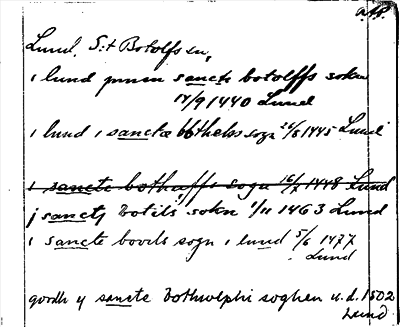 Lund, S:t Botolfs sn,
i lund sancte botolffs sokn
17/9 1440 Lund
i lund i sanctæ bothels sogn 24/8 1445 Lund
i sancte bothaffs sogn 16/2 1448 Lund
j sanctj Botils sokn 1/11 1463 Lund
i sancte bovils sogn i lund 5/6 1477
Lund
gordh y sancte Bothwolphi soghen u. d. 1502
Lund